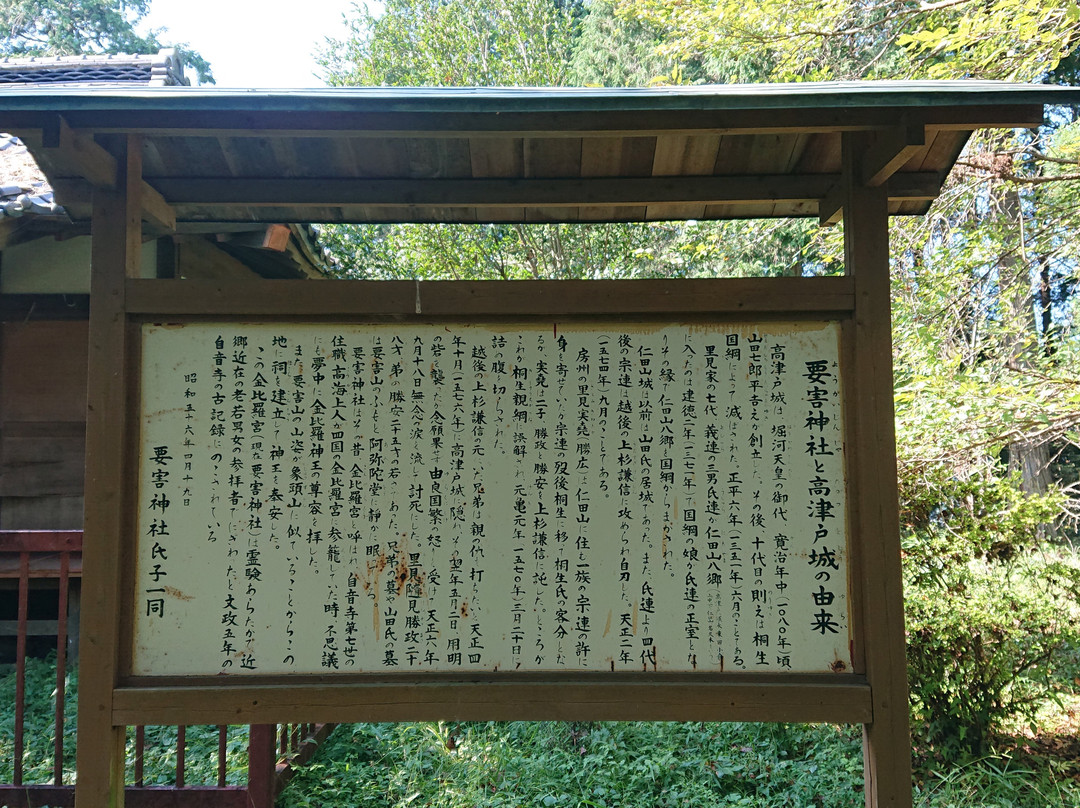 要害神社と高津戸城の由来
高津戸城は、堀河天皇の御代、寛治年中(一〇八〇年)頃
山田七郎平吉之が創立した。その後、十代目の則之は桐生
国綱によって滅ぼされた。正平六年(一三五一年)六月のことである。
里見家の七代、義連の三男氏連が仁田山八郷
に入ったのは建徳二年(一三七一年)で国綱の娘が氏連の正室とな
りその縁で仁田山八郷を国綱からもらかった。
仁田山城は、以前は山田氏の居城であった。また、氏連より四代
後の宗連は越後の上杉謙信に攻められ自刃した。天正二年
(一五七四年)九月のことである。
房州の里見実堯(勝広)は仁田山に住む一族の宗連の許に
身を寄せていたが宗連の歿後桐生に移って桐生氏の客分とな
るが、実堯は二子、勝政と勝安を上杉謙信に託した。ところが
これが桐生親綱に誤解され、元亀元年(一五七〇年)三月二十日に
詰め腹を切らされた。
越後の上杉謙信の元にいた兄弟は親の仇を打たんと天正四
年十月(一五七六年)に高津戸城に隠れ、その翌年五月二日、用明
の砦を襲ったが念願果せず由良国繁の怒りを受けて天正六年
九月十八日無念の涙を流して討死にした。里見随見勝政二十
八才、弟の勝安二十五才の若さであった。兄弟の墓や山田氏の墓
は要害山のふもと阿弥陀堂に静かに眠っている。
要害神社はその昔金比羅宮と呼ばれ自音寺第七世の
住職、高海上人が四国の金比羅宮に参籠してた時、不思議
にも夢中に金比羅神王の尊容を拝した。
また、要害山の山姿が象頭山に似ていることからこの
地に祠を建立して神王を奉安した。
この金比羅宮(現在要害神社)は霊験あらたかで近
郷近在の老若男女の参拝者でにぎわったと文政五年の
自音寺の古記録にのこされている。
昭和五十六年四月十九日
要害神社氏子一同